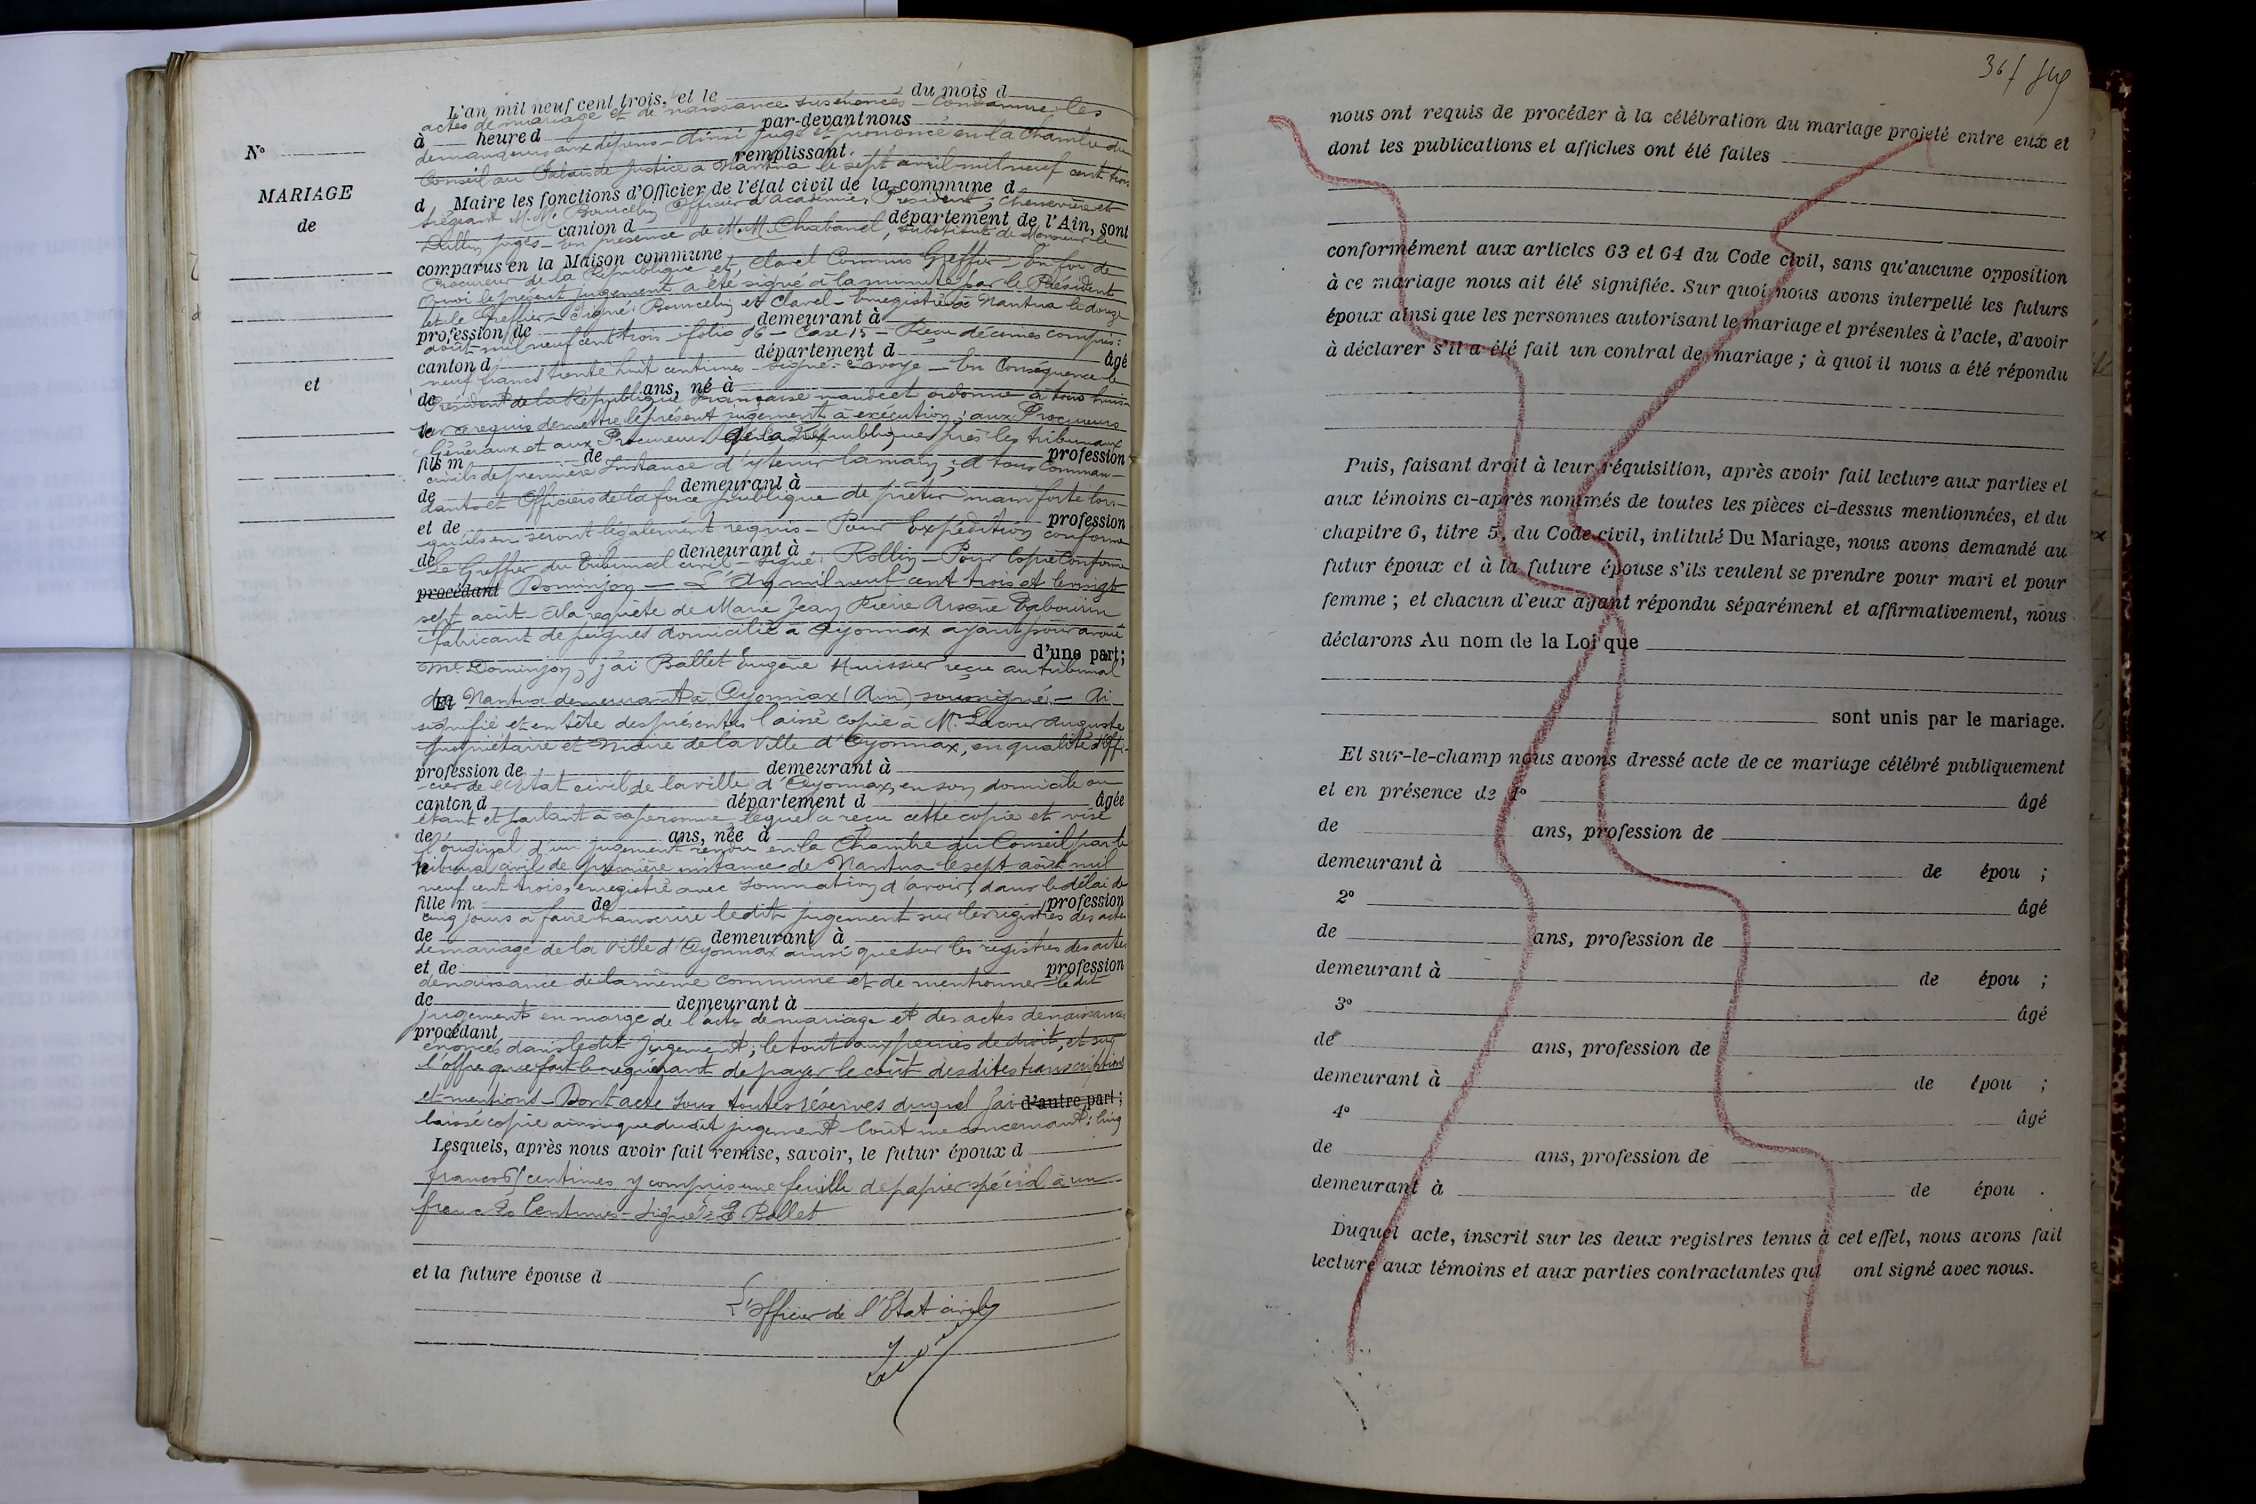 N°
MARIAGE
de
et
L'an mil neuf cent trois, et le du mois d
actes de mariage et de naissance susénoncés – Condamne les
à heure d par-devant nous
demandeurs aux dépens – Ainsi jugé et prononcé en la Chambre du
remplissant
Conseil au Palais de Justice à Nantua le sept avril mil neuf cent trois
d Maire les fonctions d'Officier de l'état civil de la commune d
siégeant M.M. Bourcelin Officier d'Académie, Président ; Chenevière et
canton d département de l'Ain, sont
Dullin juges – En présence de M. M. Chabanel, substitut de Monsieur le
comparus en la Maison commune
Procureur de la République et, Clavel Commis Greffier – En foi de
quoi le présent jugement a été signé à la minute par le Président
et le Greffier – Signé : Bourcelin et Clavel – Enregistré à Nantua le douze
profession de demeurant à
août mil neuf cent trois – folio 96 – Case 15 – Reçu décimes compris :
canton d département d âgé
neuf francs trente huit centimes – signé : Savoye – En Conséquence le
de ans, né à
Président de la République Française mande et ordonne à tous huis-
le
siers ce requis de mettre le présent jugement à exécution ; aux Procureurs
Généraux et aux Procureurs de la République près les tribunaux
fils m de profession
civils de première Instance d'y tenir la main ; à tous Comman-
de demeurant à
dants et Officiers de la force publique de prêter main forte lors-
et de profession
qu'ils en seront légalement requis – Pour Expédition conforme
de demeurant à
Le Greffier du Tribunal civil – signé : Rollin – Pour Copie Conforme
procédant Dominjon – L'An mil neuf cent trois et le vingt
sept août – A la requête de Marie Jean Pierre Arsène Tabourin
fabricant de peignes domicilié à Oyonnax ayant pour avoué
d'une part ;
Me Dominjon, j'ai Ballet Eugène Huissier reçu au tribunal
Et
de Nantua demeurant à Oyonnax (Ain) soussigné – Ai
signifié et en tête des présentes laissé copie à Mr Lacour Auguste
propriétaire et Maire de la Ville d'Oyonnax, en qualité d'Offi-
profession de demeurant à
cier de l'Etat civil de la ville d'Oyonnax, en son domicile où
canton d département d âgée
étant et parlant à sa personne lequel a reçu cette copie et visé
de ans, née à
l'original d'un jugement rendu en la Chambre du Conseil par le
le
tribunal civil de première instance de Nantua le sept août mil
neuf cent trois, enregistré avec sommation d'avoir, dans le délai de
fille m de profession
cinq jours à faire transcrire ledit jugement sur les registres des actes
de demeurant à
de mariage de la Ville d'Oyonnax ainsi que sur les registres des actes
et de profession
de naissance de la même commune et de mentionner ledit
de demeurant à
jugement en marge de l'acte de mariage et des actes de naissance
procédant
énoncés dans ledit jugement ; le tout aux peines de droit, et sur
l'offre que fait le requérant de payer le coût desdites transcriptions
et mentions – Dont acte sous toutes réserves duquel j'ai d'autre part ;
laissé copie ainsi que dudit jugement – Coût me concernant : cinq
Lesquels, après nous avoir fait remise, savoir, le futur époux d
francs centimes y compris une feuille de papier spécial à un
franc 20 Centimes – Signé : E Ballet
et la future épouse d
L'officier de l'Etat civil
36
nous ont requis de procéder à la célébration du mariage projeté entre eux et
dont les publications et affiches ont été faites
conformément aux articles 63 et 64 du Code civil, sans qu'aucune opposition
à ce mariage nous ait été signifiée. Sur quoi nous avons interpellé les futurs
époux ainsi que les personnes autorisant le mariage et présentes à l'acte, d'avoir
à déclarer s'il a été fait un contrat de mariage ; à quoi il nous a été répondu
Puis, faisant droit à leur réquisition, après avoir fait lecture aux parties et
aux témoins ci-après nommés de toutes les pièces ci-dessus mentionnées, et du
chapitre 6, titre 5, du Code civil, intitulé Du Mariage, nous avons demandé au
futur époux et à la future épouse s'ils veulent se prendre pour mari et pour
femme ; et chacun d'eux ayant répondu séparément et affirmativement, nous
déclarons Au nom de la Loi que
sont unis par le mariage.
Et sur-le-champ nous avons dressé acte de ce mariage célébré publiquement
et en présence de 1° âgé
de ans, profession de
demeurant à de épou ;
2° âgé
de ans, profession de
demeurant à de épou ;
3° âgé
de ans, profession de
demeurant à de épou ;
4° âgé
de ans, profession de
demeurant à de épou .
Duquel acte, inscrit sur les deux registres tenus à cet effet, nous avons fait
lecture aux témoins et aux parties contractantes qui ont signé avec nous.